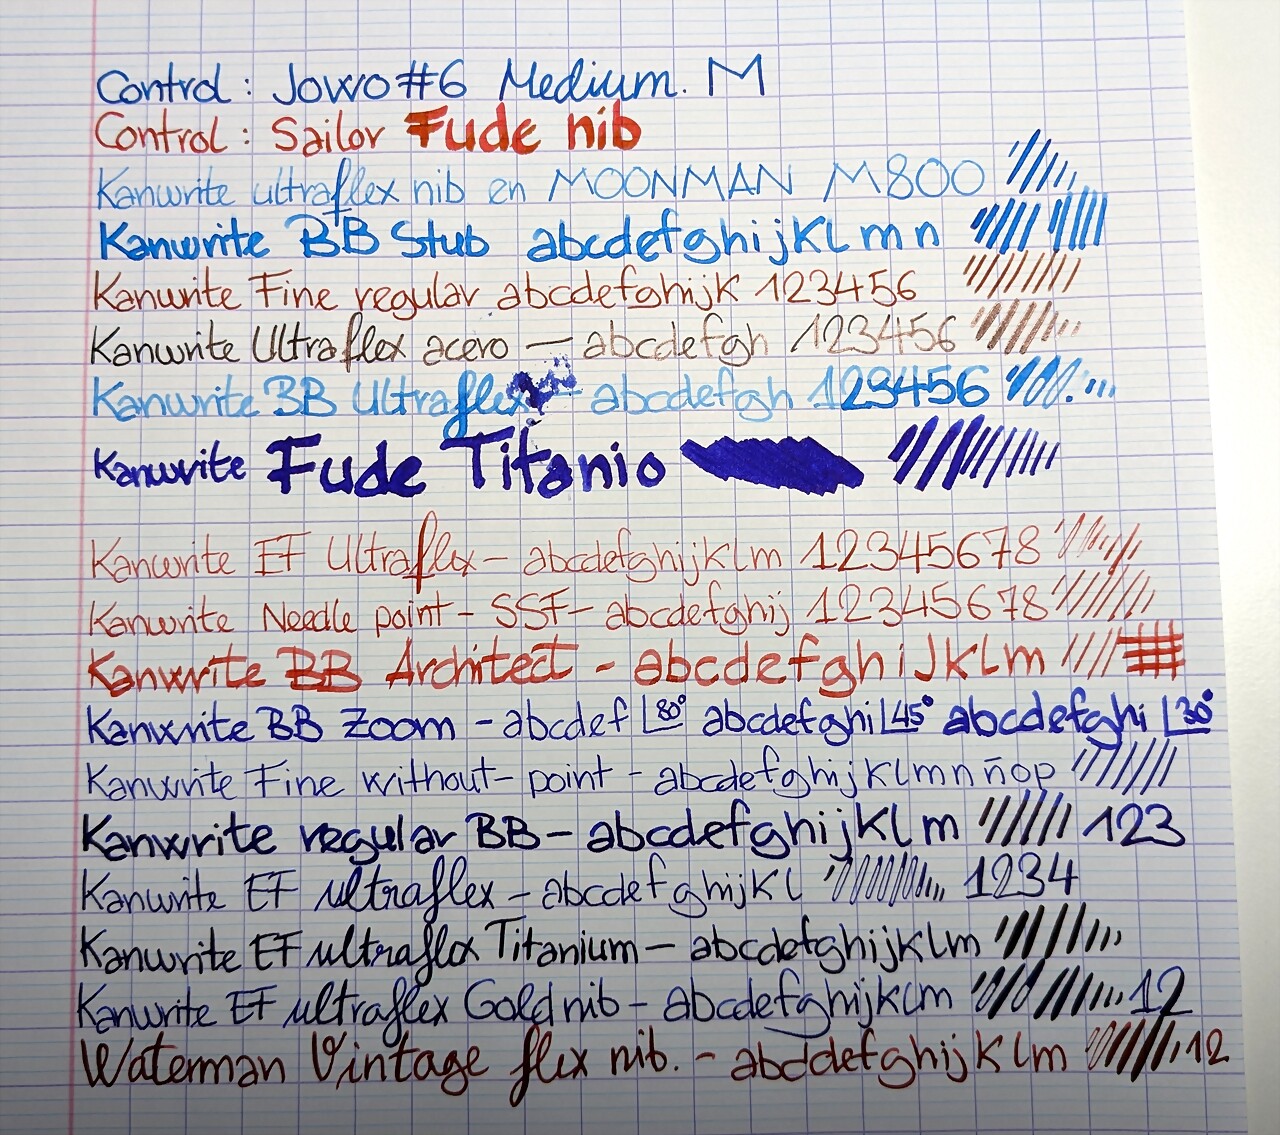 Control: Jowo #6 Medium. M
Control: Sailor Fude nib
Kanwrite ultraflex nib en MOONMAN M800
Kanwrite BB Stub abcdefghijklmn
Kanwrite Fine regular abcdefghijk 123456
Kanwrite Ultraflex acero — abcdefgh 123456
Kanwrite BB Ultraflex — abcdefgh 123456
Kanwrite Fude Titanio
Kanwrite EF Ultraflex - abcdefghijklm 12345678
Kanwrite Needle point - SSF - abcdefghij 12345678
Kanwrite BB Architect - abcdefghijklm
Kanwrite BB Zoom - abcdef 80° abcdefghi 45° abcdefghi 30°
Kanwrite Fine without - point - abcdefghijklmnñop
Kanwrite regular BB - abcdefghijklm 123
Kanwrite EF ultraflex - abcdefghijkl 1234
Kanwrite EF ultraflex Titanium - abcdefghijklm
Kanwrite EF ultraflex Gold nib - abcdefghijklm 12
Waterman Vintage flex nib. - abcddefghijklm 12